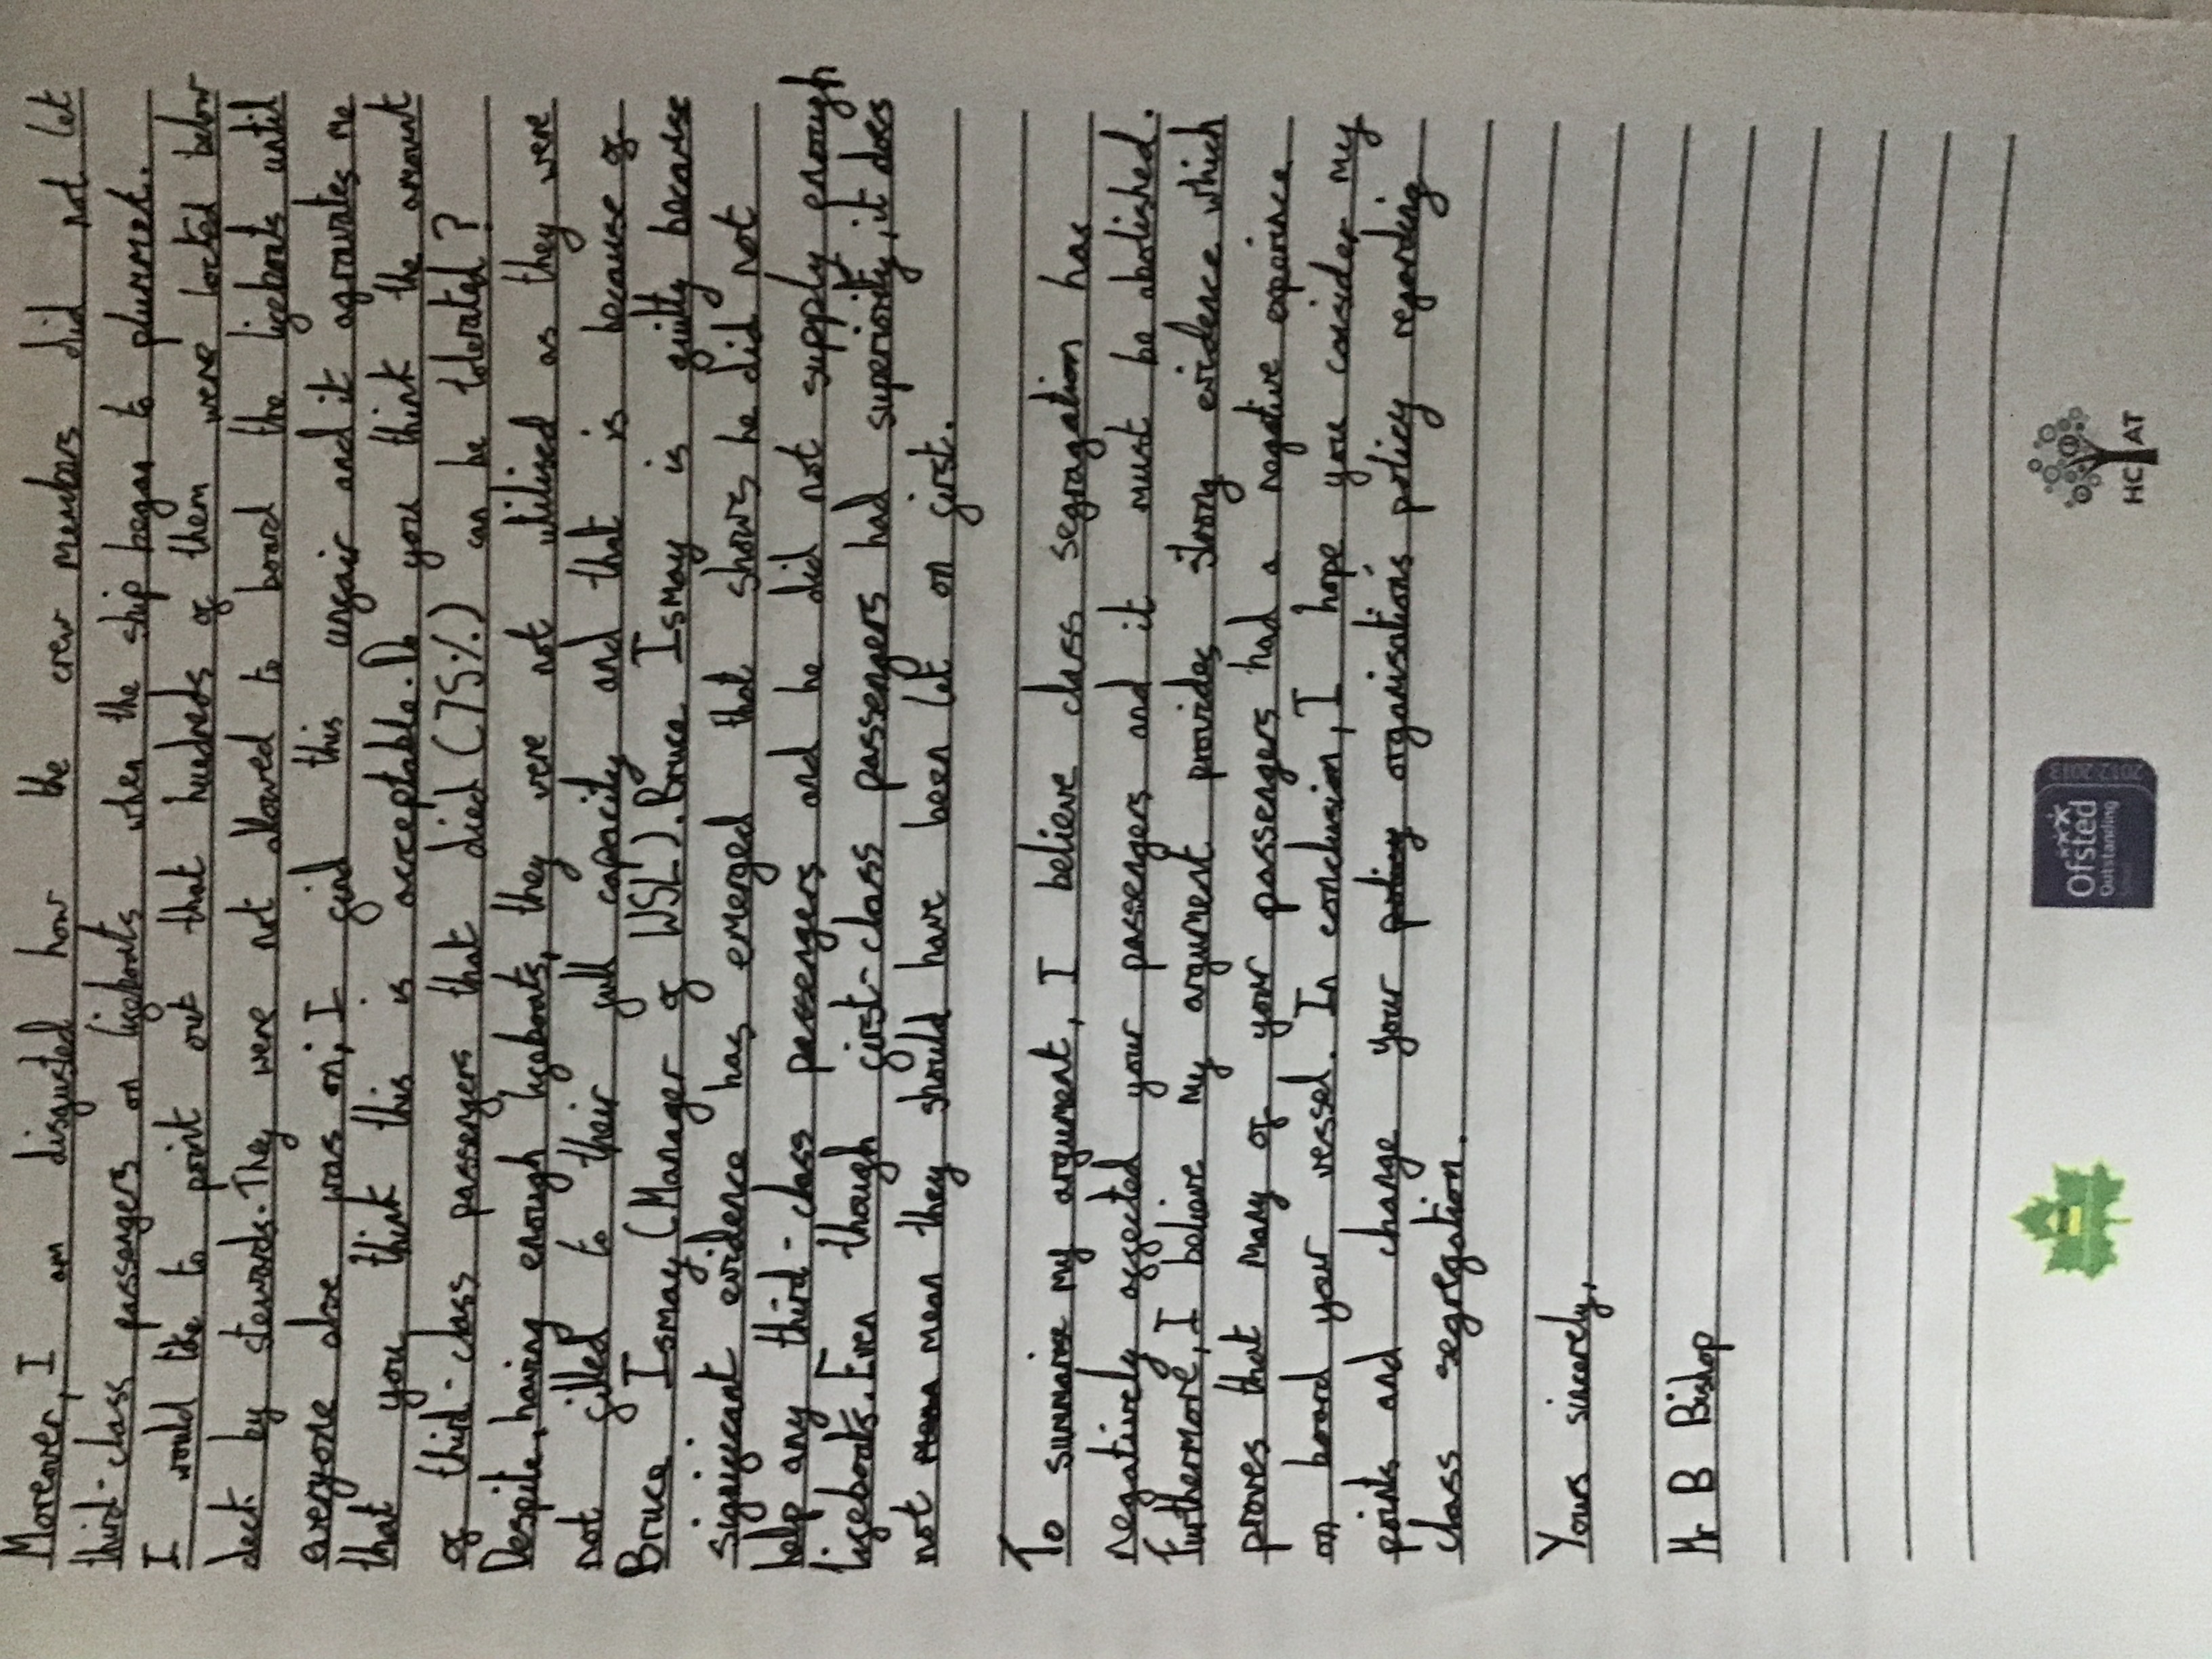 Moreover, I am disgusted how the crew members did not let
third-class passengers on lifeboats when the ship began to plummet.
I would like to point out that hundreds of them were locked below
deck by stewards. They were not allowed to board the lifeboats until
everyone else was on, I find this unfair and it agravates me
that you think this is acceptable. Do you think the amount
of third-class passengers that died (75%) can be tolerated?
Despite, having enough lifeboats, they were not utilised as they were
not filled to their full capacity and that is because of
Bruce Ismay (Manager of WSL). Bruce Ismay is guilty because
significant evidence has emerged that shows he did not
help any third-class passengers and he did not supply enough
lifeboats. Even though first-class passengers had superiority, it does
not mean they should have been let on first.
To summarise my argument, I believe class segragation has
negatively affected your passengers and it must be abolished.
Furthermore, I believe my argument provides strong evidence which
proves that many of your passengers had a negative experience
on board your vessel. In conclusion, I hope you consider my
points and change your organisation's policy regarding
class segregation.
Yours sincerely,
Mr B Bishop
Ofsted
Outstanding
2012 2013
HC AT